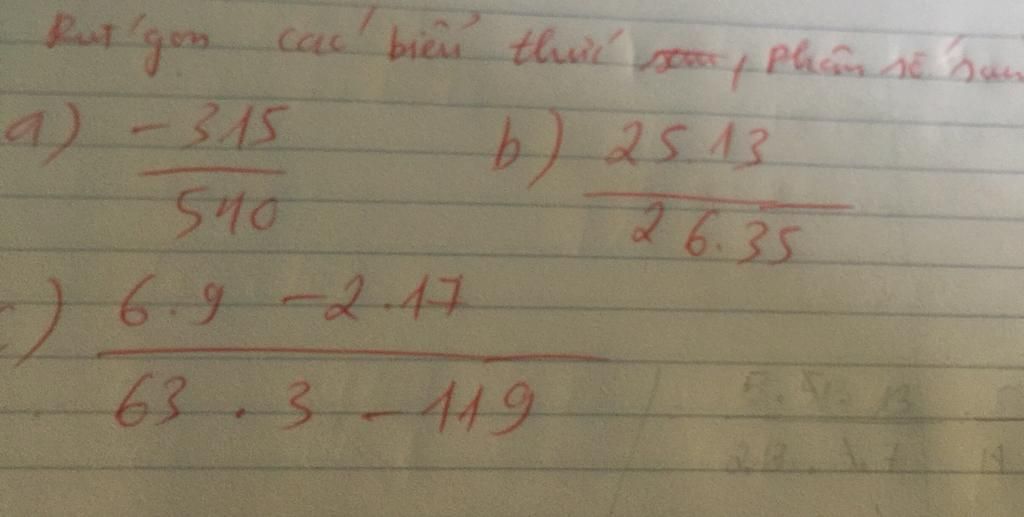 Rút gọn các biểu thức, phân số sau
a) -315 b) 25.13
540 26.35
) 6.9 - 2.17
63 . 3 - 119